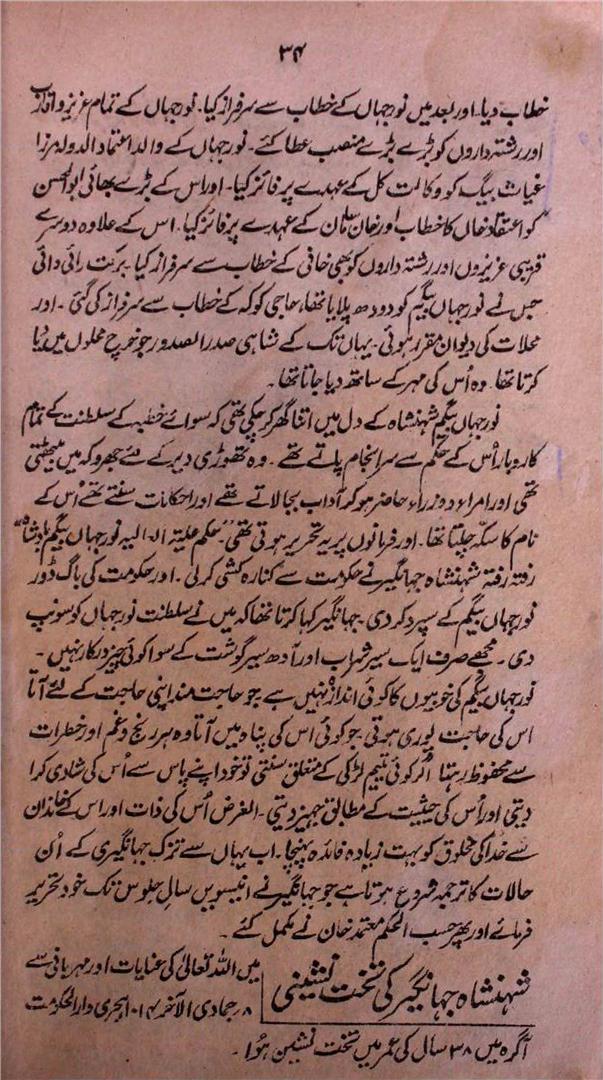 ۳۴
خطاب دیا۔ اور بعد میں نورجہاں کے خطاب سے سرفراز کیا۔ نورجہاں کے تمام عزیز و اقارب
اور رشتہ داروں کو بڑے بڑے منصب عطا کئے۔ نورجہاں کے والد اعتماد الدولہ مرزا
غیاث بیگ کو وکالت کل کے عہدے پر فائز کیا۔ اور اس کے بڑے بھائی ابوالحسن
کو اعتقاد خاں کا خطاب اور خان ساماں کے عہدے پر فائز کیا۔ اس کے علاوہ دوسرے
قریبی عزیزوں اور رشتہ داروں کو بھی خانی کے خطاب سے سرفراز کیا۔ رائی دائی
جس نے نورجہاں بیگم کو دودھ پلایا تھا، حاجی کوکہ کے خطاب سے سرفراز کی گئی۔ اور
محلات کی دیوان مقرر ہوئی۔ یہاں تک کے شاہی صدر الصدور جو خرچ محلوں میں دیا
کرتا تھا۔ وہ اُس کی مہر کے ساتھ دیا جاتا تھا۔
نورجہاں بیگم شہنشاہ کے دل میں اتنا گھر کر چکی تھی کہ سوائے خطبہ کے سلطنت کے تمام
کاروبار اُس کے حکم سے سرانجام پاتے تھے۔ وہ تھوڑی دیر کے لئے جھروکہ میں بیٹھتی
تھی اور امراء و وزراء حاضر ہو کر آداب بجا لاتے تھے اور احکامات سنتے تھے اُس کے
نام کا سکہ چلتا تھا۔ اور فرمانوں پر یہ تحریر ہوتی تھی۔ "حکم علیۃ العالیہ نورجہاں بیگم بادشاہ"
رفتہ رفتہ شہنشاہ جہانگیر نے حکومت سے کنارہ کشی کر لی۔ اور حکومت کی باگ ڈور
نورجہاں بیگم کے سپرد کر دی۔ جہانگیر کہا کرتا تھا کہ میں نے سلطنت نورجہاں کو سونپ
دی۔ مجھے صرف ایک سیر شراب اور آدھ سیر گوشت کے سوا کوئی چیز درکار نہیں۔
نورجہاں بیگم کی خوبیوں کا کوئی اندازہ نہیں ہے جو حاجت مند اپنی حاجت کے لئے آتا
اس کی حاجت پوری ہوتی۔ جو کوئی اس کی پناہ میں آتا وہ ہر رنج و غم اور خطرات
سے محفوظ رہتا اگر کوئی یتیم لڑکی کے متعلق سنتی تو خود اپنے پاس سے اُس کی شادی کرا
دیتی اور اُس کی حیثیت کے مطابق جہیز دیتی۔ الغرض اُس کی ذات اور اس کے خاندان
سے خدا کی مخلوق کو بہت زیادہ فائدہ پہنچا۔ اب یہاں سے تزک جہانگیری کے اُن
حالات کا ترجمہ شروع ہوتا ہے جو جہانگیر نے انیسویں سال جلوس تک خود تحریر
فرمائے اور پھر حسب الحکم معتمد خان نے مکمل کئے۔
شہنشاہ جہانگیر کی تخت نشینی
میں اللہ تعالیٰ کی عنایات اور مہربانی سے
۸ جمادی الآخر ۱۰۱۴ ہجری دارالحکومت
آگرہ میں ۳۸ سال کی عمر میں تخت نشین ہُوا۔